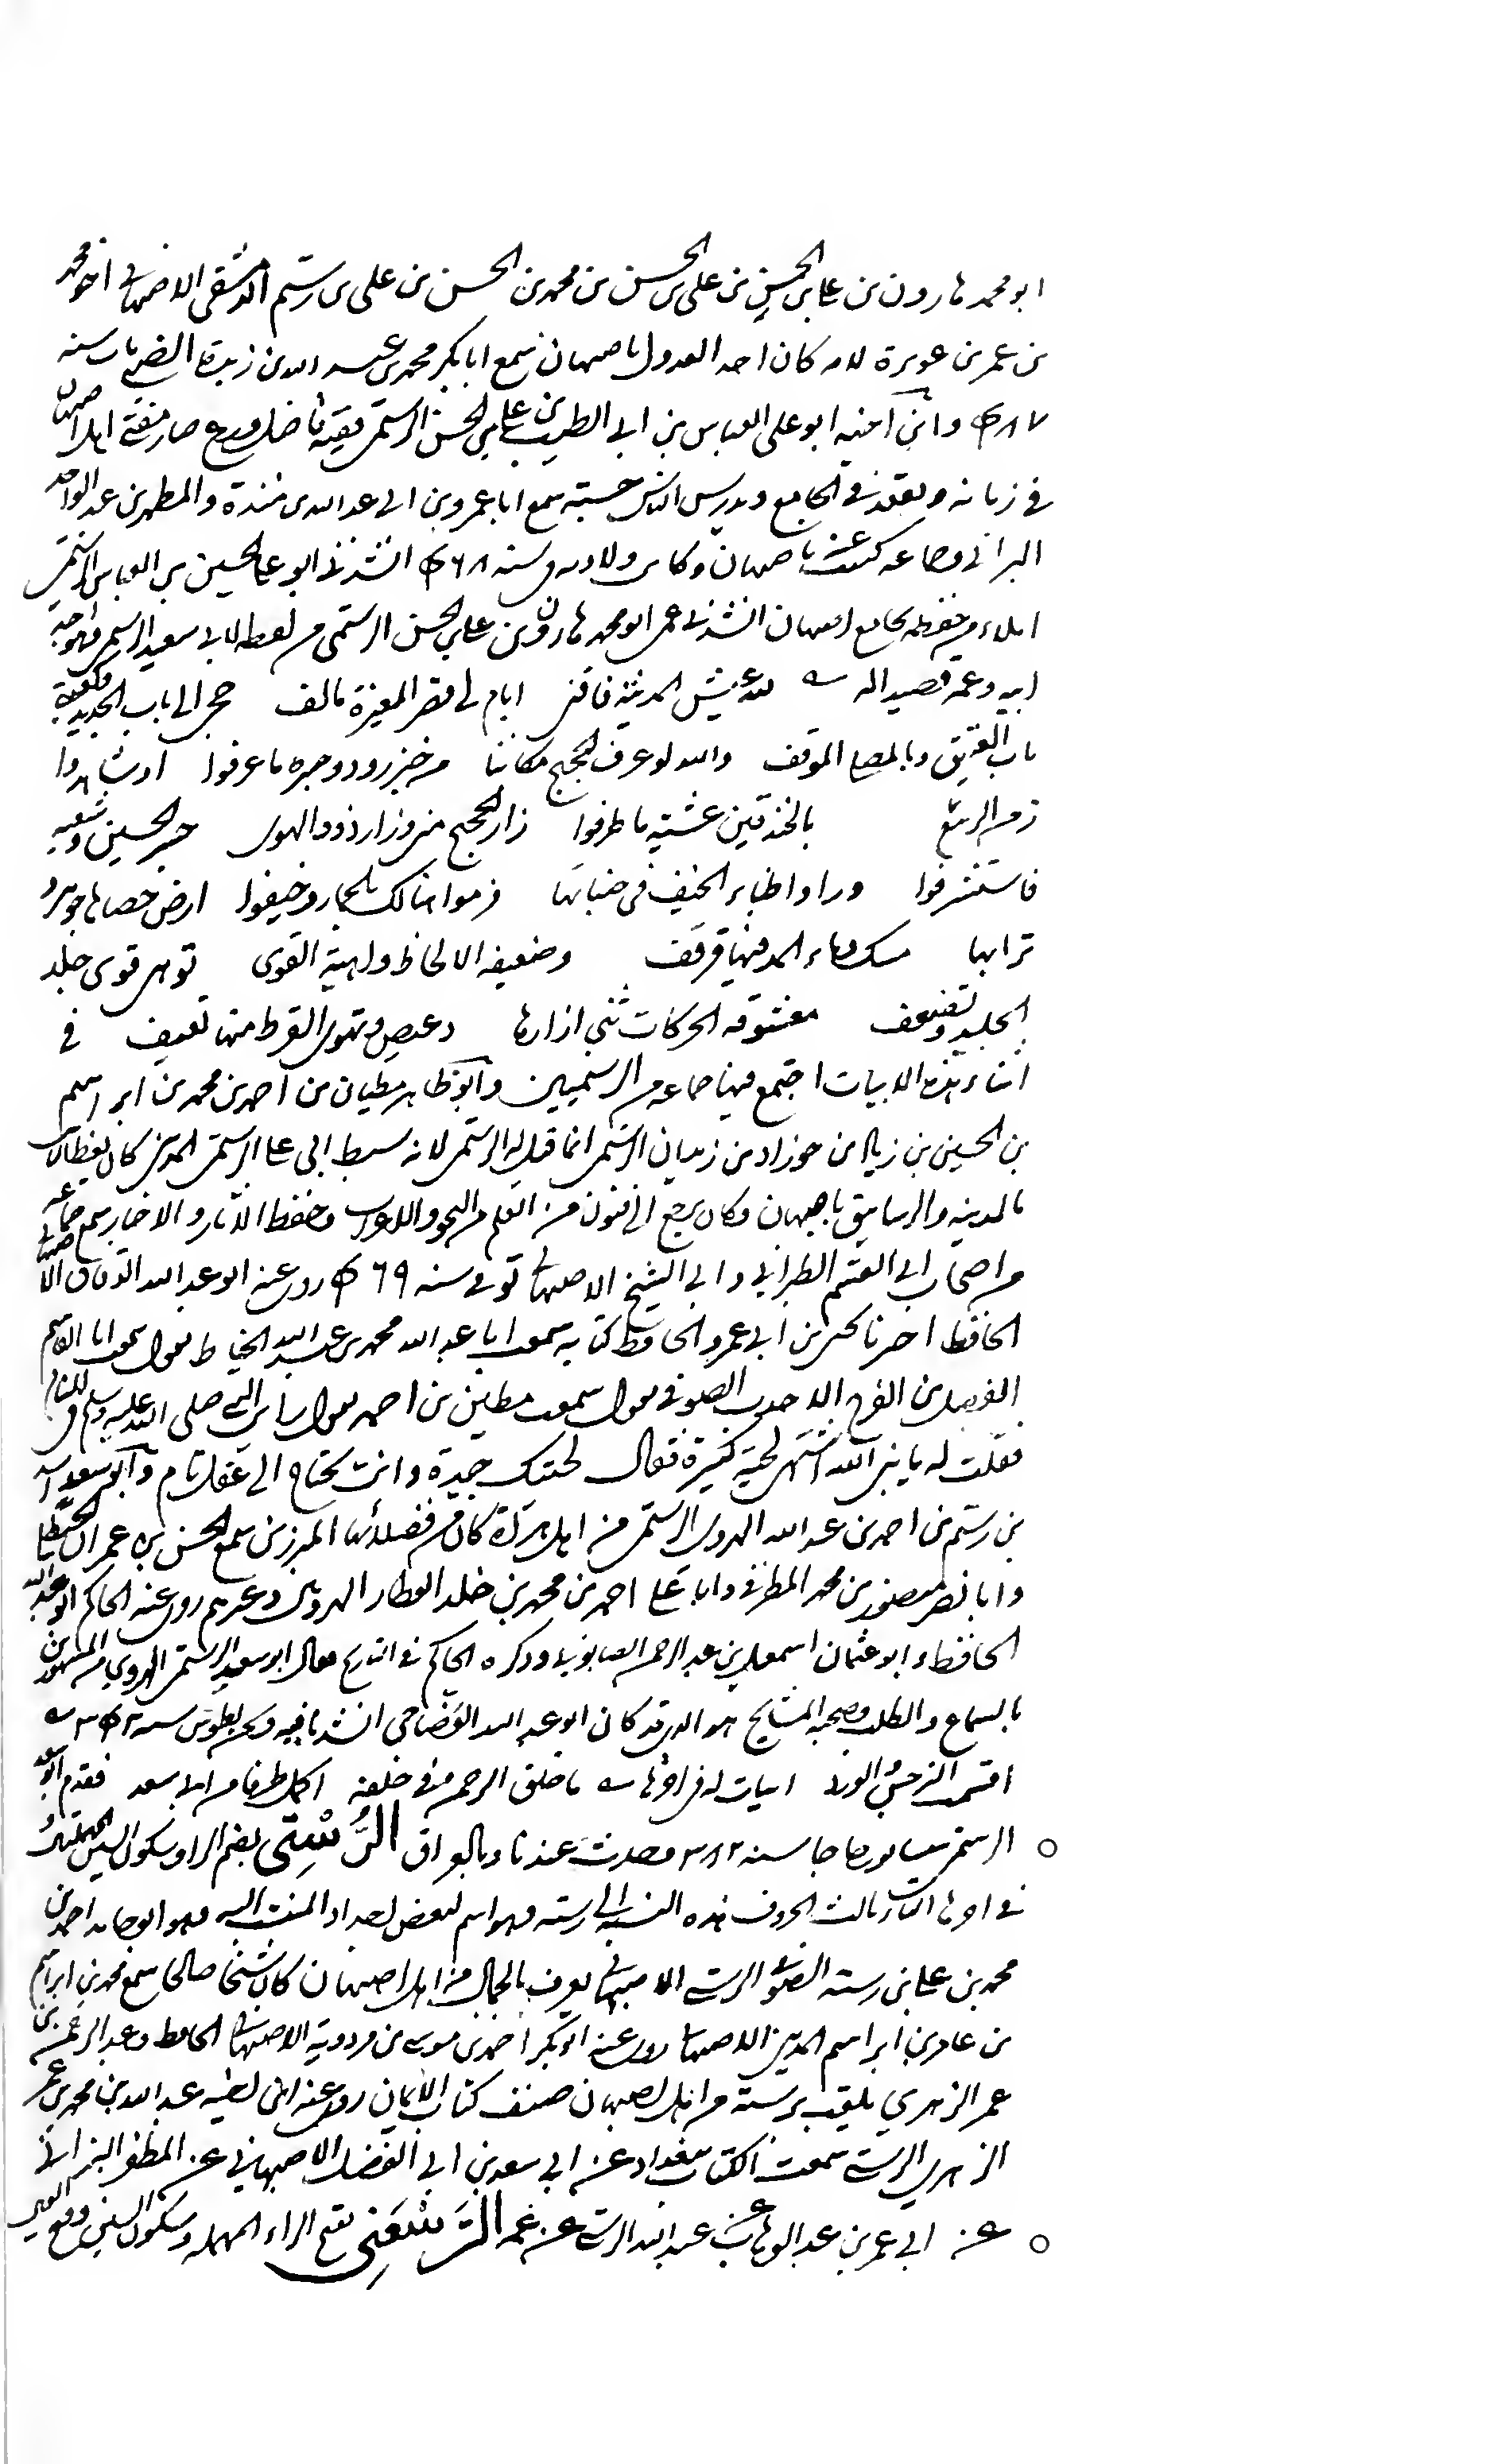 ابو محمد هارون بن على بن الحسين بن على بن الحسن بن محمد بن الحسن بن على بن رستم الدمشقى الاصبهانى اخو محمد
بن عمر بن عويرة لامه كان احد العدول باصبهان سمع ابا بكر محمد بن عبد الله بن زيدة الضبى مات سنه
وابن اخيه ابو على العباس بن ابى الطيب بن على بن الحسن الرستمى فقيه فاضل ورع صار مفتى اهل اصبهان
فى زمانه ويقعد فى الجامع ويدرس الناس حسبة سمع ابا عمرو بن ابى عبد الله بن مندة والمطهر بن عبد الواحد
البزانى وجماعه كتبت عنه باصبهان وكانت ولادته فى سنه ۴۶۸ انشدنى ابو على الحسين بن العباس الرستمى
املاء من حفظه بجامع اصبهان انشدنى عمى ابو محمد هارون بن على بن الحسن الرستمى من لفظه لابى سعيد الرستمى
ابيه وعمه قصيدا له لله عيش المدينة فاتنى ايام لى قصر المغيرة مالف حجى الى باب الجديد وكعبتى
باب العتيق وبالمصلى الموقف والله لو عرف الحجيج مكاننا من خير رود وجسره ما عرفوا او شاهدوا
زمن الربيع بالخندقين عشية ما طرفوا زار الحجيج منى وزار ذوو الهوى جسر الحسين وشعبه
فاستشرفوا وراوا ظباء الخيف فى جنباتها فرموا هنالك بالجمار وخيفوا ارض حصاها جوهر و
ترابها مسك وماء المد فيها قرقف وضعيفه الالحاظ واهية القوى تو هى قوى جلد
الجليد وتضعف معشوقه الحركات ثنى ازارها دعص وتهوى القرط منها نفنف فى
اثناء هذه الابيات اجتمع فيها جماعه من الرستميين وابو طاهر مطيان بن احمد بن محمد بن ابراهيم
بن الحسين بن زيالد بن خوزاد بن الرستمى انما قيل له الرستمى لانه سبط ابى على الرستمى المدينى كان يعظ الناس
بالمدينه والرساتيق باصبهان وكان يرجع الى فنون من العلم من النحو واللغه وحفظ الاثار والاخبار سمع جماعه
من اصحاب ابى القسم الطبرانى وابى الشيخ الاصبهانى توفى سنه ۴۶۹ روى عنه ابو عبد الله الدقاق الاصبهانى
الحافظ اخبرنا يحيى بن ابى عمرو الحافظ كتابه سمعت ابا عبد الله محمد بن عبد الله الخياط يقول سمعت ابا القاسم
الفضل بن الفرج الصوفى يقول سمعت مطين بن احمد يقول رايت النبى صلى الله عليه وسلم فى المنام
فقلت له يا نبى الله اشتهى لحية كثيرة فقال لحيتك جيدة وانت تحتاج الى عقل تام وابو سعيد اسد
بن رستم بن احمد بن عبد الله الهروى الرستمى من اهل هراة كان من فضلائها المبرزين سمع الحسن بن عمران الحنظلى
وابا نصر منصور بن محمد المطرفى وابا على احمد بن محمد بن خلد العطار الهروى وغيرهم روى عنه الحاكم ابو عبد الله
الحافظ وابو عثمان اسمعيل بن عبد الرحمن الصابونى وذكره الحاكم فى التاريخ فقال ابو سعيد الرستمى الهروى من المشهورين
بالسماع والطلب وصحبه المشايخ هو الذى قد كان ابو عبد الله انشدنا فيه ونحن بطوس سنه ۳۴۲
اقسمت الزحى الورد ابيات له فى اخرها ما خلق الرحمن فى خلقه اكمل ظرفا من ابى سعد فقدم ابو سعد
○ الرستمى نيسابور حاجا سنه ۳۸۲ وحدث عندنا وبالعراق الرُّسْتِى بضم الرا وسكون السين المهملتين
فى اخرها التا ثالث الحروف هذه النسبه الى رسته وهو اسم لبعض اجداد المنتسب اليه وهو ابو حامد احمد بن
محمد بن على بن رسته الصوفى الرستى الاصبهانى يعرف بالجمال من اهل اصبهان كان شيخا صالحا سمع محمد بن ابراهيم
بن عامر بن ابراهيم المدينى الاصبهانى روى عنه ابو بكر احمد بن موسى بن مردويه الاصبهانى الحافظ وعبد الرحمن بن
عمر الزهرى يلقب برستة من اهل اصبهان صنف كتاب الايمان روى عنه ابن اخيه عبد الله بن محمد بن عمر
الزهرى الرستى سمعت الكتاب ببغداد عن ابى سعد بن ابى الفضل الاصبهانى عن المطهر البزانى
○ عن ابى عمر بن عبد الوهاب عن عبد الله الرستى عن عمه الرَّسْعَنِى بفتح الراء المهمله وسكون السين وفتح العين